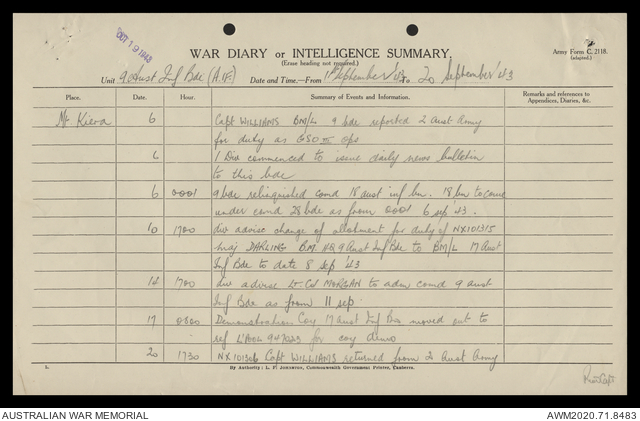 OCT 19 1943
WAR DIARY or INTELLIGENCE SUMMARY.
(Erase heading not required.)
Army Form C. 2118.
(adapted.)
Unit 9 Aust Inf Bde (A.I.F.) Date and Time.—From 1st September '43 To 20 September '43
Place. Date. Hour. Summary of Events and Information. Remarks and references to
Appendices, Diaries, &c.
Mt Kiera 6 Capt WILLIAMS BM/L 9 bde reported 2 aust Army
for duty as GSO III ops
6 1 Div commenced to issue daily news bulletin
to this bde
6 0001 9 bde relinquished comd 18 aust inf bn. 18 bn to come
under comd 28 bde as from 0001 6 sep '43.
10 1700 div advise change of allotment for duty of NX101315
maj DARLING B.M. HQ 9 Aust Inf Bde to BM/L 17 Aust
Inf Bde to date 8 sep '43
14 1700 div advise Lt Col MORGAN to adm comd 9 aust
Inf Bde as from 11 sep
17 0800 Demonstration Coy 17 aust Inf moved out to
ref 947023 for coy demo
20 1730 Capt WILLIAMS returned from 2 Aust Army
5. By Authority: L. F. Johnston, Commonwealth Government Printer, Canberra.
AUSTRALIAN WAR MEMORIAL AWM2020.71.8483